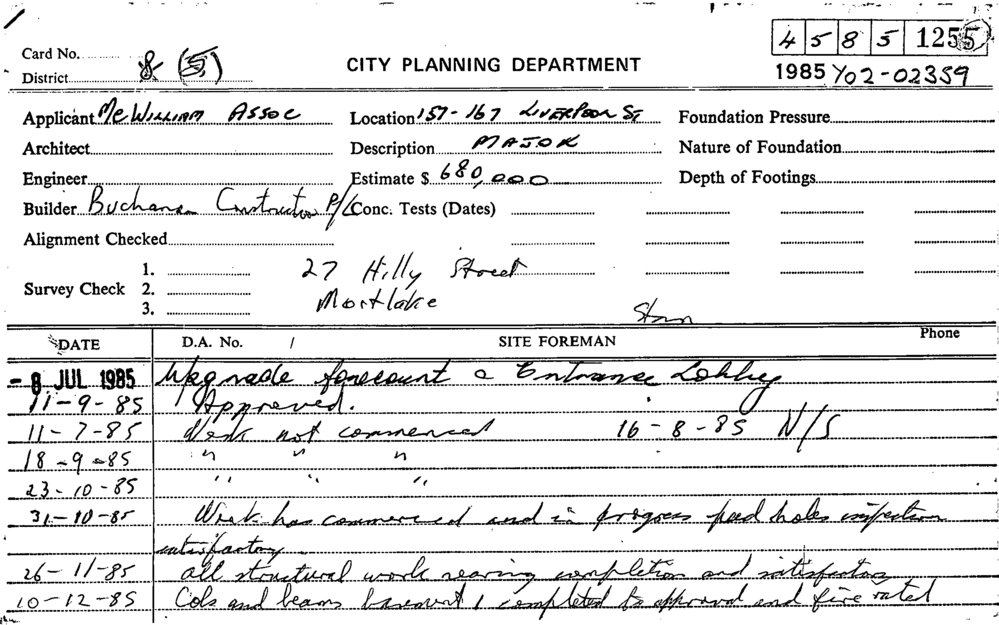 4 5 8 5 1255
Card No.
District 8 (5)
CITY PLANNING DEPARTMENT
1985 Y02-02359
Applicant McWilliam Assoc Location 157-167 Liverpool St Foundation Pressure
Architect Description MAJOR Nature of Foundation
Engineer Estimate $ 680,000 Depth of Footings
Builder Buchanan Construction P/L Conc. Tests (Dates)
Alignment Checked
Survey Check 1. 2. 3.
27 Hilly Street
Mortlake
Stan
DATE D.A. No. / SITE FOREMAN Phone
- 8 JUL 1985 Upgrade forecourt & Entrance Lobby
11-9-85 Approved.
11-7-85 Work not commenced 16-8-85 N/S
18-9-85 " " "
23-10-85 " " "
31-10-85 Work has commenced and in progress pad holes inspection
satisfactory
26-11-85 all structural work nearing completion and satisfactory
10-12-85 Cols and beams basement 1 completed to approval and fire rated